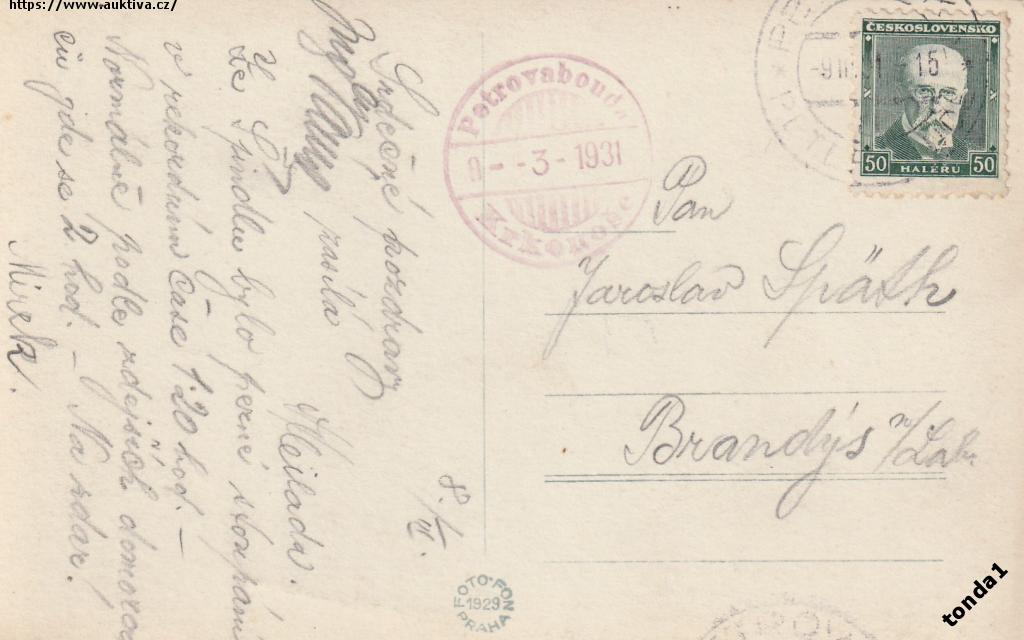 https://www.auktiva.cz/
8./III.
Srdečné pozdravy
rasíla Meilada.
Ze Špindlu bylo pezné stoupání
v rekordním čase 1.20 hod. –
Normálně podle zdejších
jde se 2 hod. – Na zdar!
Mirek.
Petrovabouda
8 - -3- 1931
Krkonoše
ČESKOSLOVENSKO
50 HALÉŘŮ 50
-9.III.
15
Pan
Jaroslav Späth
Brandýs n/Lab.
FOTO-FON
1929
PRAHA
tonda1